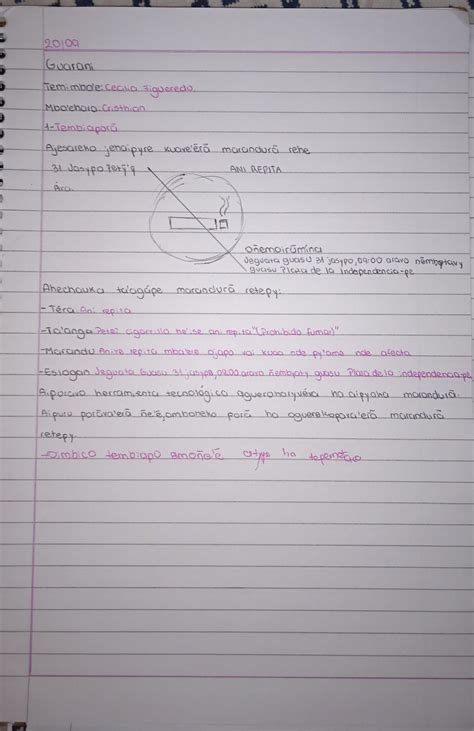 20/09
Guarani
Temimbo'e: Cecilia Figueredo.
Mbo'ehara: Cristhian
1-Tembiaporã
Ajesareko jehaipyre kuave'ẽrã marandurã rehe
31 Jasypo Petỹ'ỹ ANI REPITA
Ára.
Oñemoirũmína
Jeguata guasu 31 jasypo, 09:00 aravo
guasu Plaza de la Independencia-pe
Ahechauka ta'ãngápe marandurã retepy:
- Téra: Ani repita
-Ta'anga Peteĩ cigarrillo he'ise ani repita "(Prohibido Fumar)"
-Marandu Ani re repita mba'ére ojapo vai kuaa nde py'ame nde afecta
-Eslogan Jeguata Guasu 31 jasypo, 09:00 aravo Ñembyaty guasu Plaza de la independencia-pe
Aiporavo herramienta tecnológico aguerohoryvéva ha aipyaha marandurã.
Aipuru porãva'erã ñe'ẽ, amboheko porã ha oguerekopava'erã marandurã
retepy.
tembiapo ha